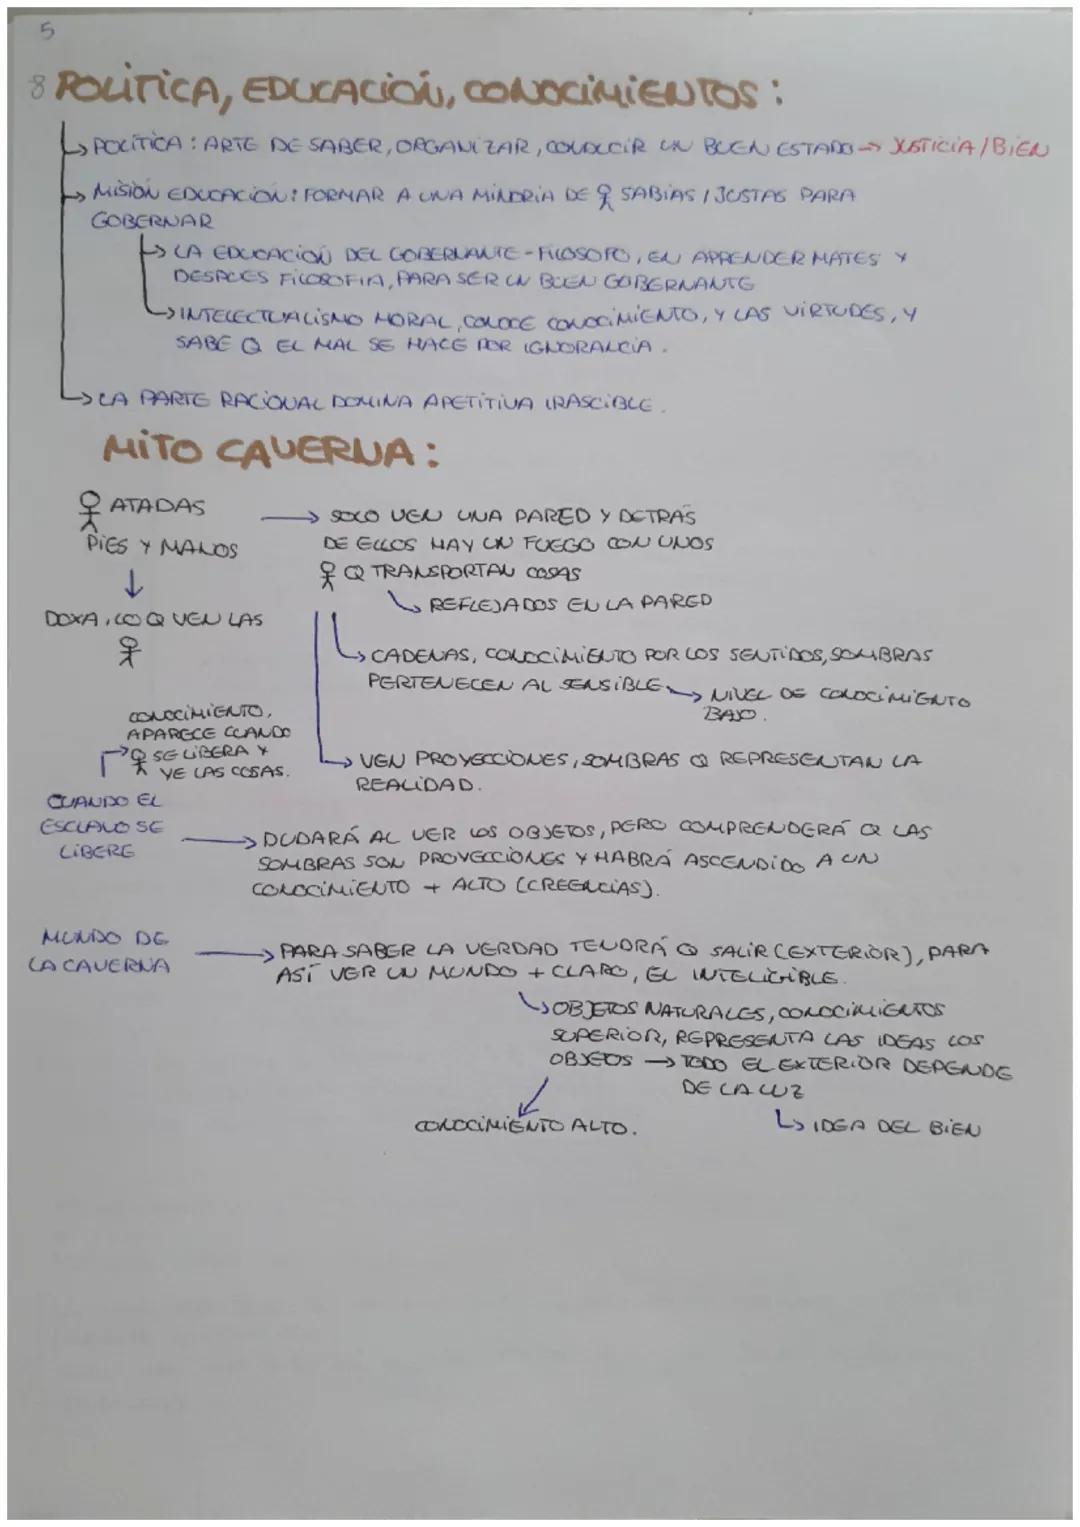 5
8 POLÍTICA, EDUCACIÓN, CONOCIMIENTOS:
↳ POLÍTICA: ARTE DE SABER, ORGANIZAR, CONDUCIR UN BUEN ESTADO → JUSTICIA/BIEN
↳ MISIÓN EDUCACIÓN: FORMAR A UNA MINORÍA DE SABIAS / JUSTAS PARA
GOBERNAR
↳ LA EDUCACIÓN DEL GOBERNANTE-FILOSOFO, EN APRENDER MATES Y
DESPUES FILOSOFIA, PARA SER UN BUEN GOBERNANTE
↳ INTELECTUALISMO MORAL, CONOCE CONOCIMIENTO, Y LAS VIRTUDES, Y
SABE Q EL MAL SE HACE POR IGNORANCIA.
↳ LA PARTE RACIONAL DOMINA APETITIVA IRASCIBLE.
MITO CAVERNA:
ATADAS
PIES Y MANOS
→ SOLO VEN UNA PARED Y DETRÁS
DE ELLOS HAY UN FUEGO CON UNOS
Q TRANSPORTAN COSAS
↳ REFLEJADOS EN LA PARED
↓
DOXA, LO Q VEN LAS
↳ CADENAS, CONOCIMIENTO POR LOS SENTIDOS, SOMBRAS
PERTENECEN AL SENSIBLE → NIVEL DE CONOCIMIENTO
BAJO.
CONOCIMIENTO,
APARECE CUANDO
SE LIBERA Y
VE LAS COSAS.
↳ VEN PROYECCIONES, SOMBRAS Q REPRESENTAN LA
REALIDAD.
CUANDO EL
ESCLAVO SE
LIBERE
→ DUDARÁ AL VER LOS OBJETOS, PERO COMPRENDERÁ Q LAS
SOMBRAS SON PROYECCIONES Y HABRÁ ASCENDIDO A UN
CONOCIMIENTO + ALTO (CREENCIAS).
MUNDO DE
LA CAVERNA
→ PARA SABER LA VERDAD TENDRÁ Q SALIR (EXTERIOR), PARA
ASÍ VER UN MUNDO + CLARO, EL INTELIGIBLE.
↳ OBJETOS NATURALES, CONOCIMIENTOS
SUPERIOR, REPRESENTA LAS IDEAS LOS
OBJETOS → TODO EL EXTERIOR DEPENDE
DE LA LUZ
↳ IDEA DEL BIEN
CONOCIMIENTO ALTO.